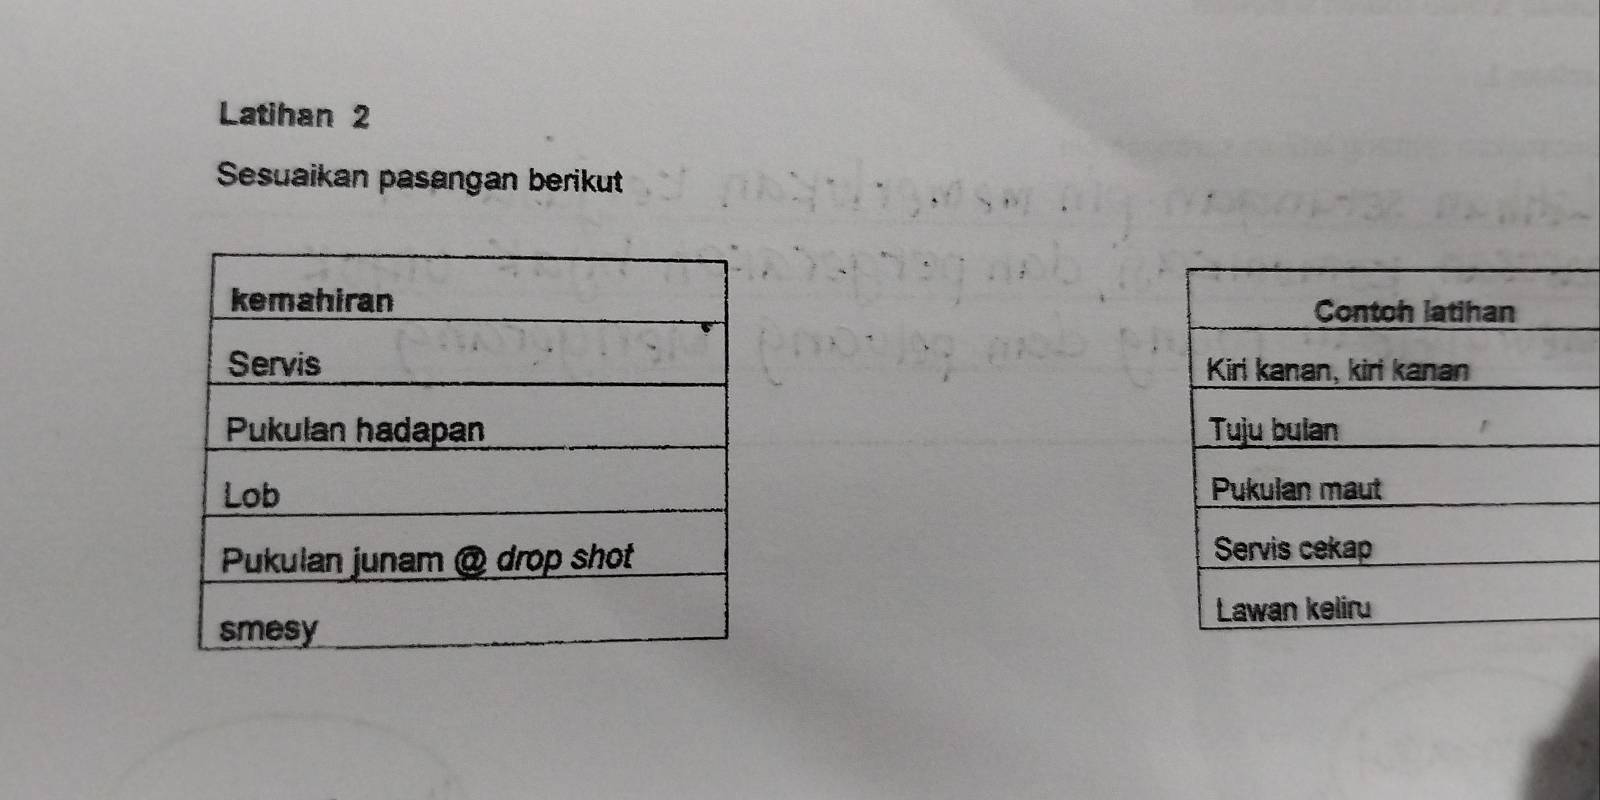 Latihan 2
Sesuaikan pasangan berikut
kemahiran
Servis
Pukulan hadapan
Lob
Pukulan junam @ drop shot
smesy
Contoh latihan
Kiri kanan, kiri kanan
Tuju bulan
Pukulan maut
Servis cekap
Lawan keliru